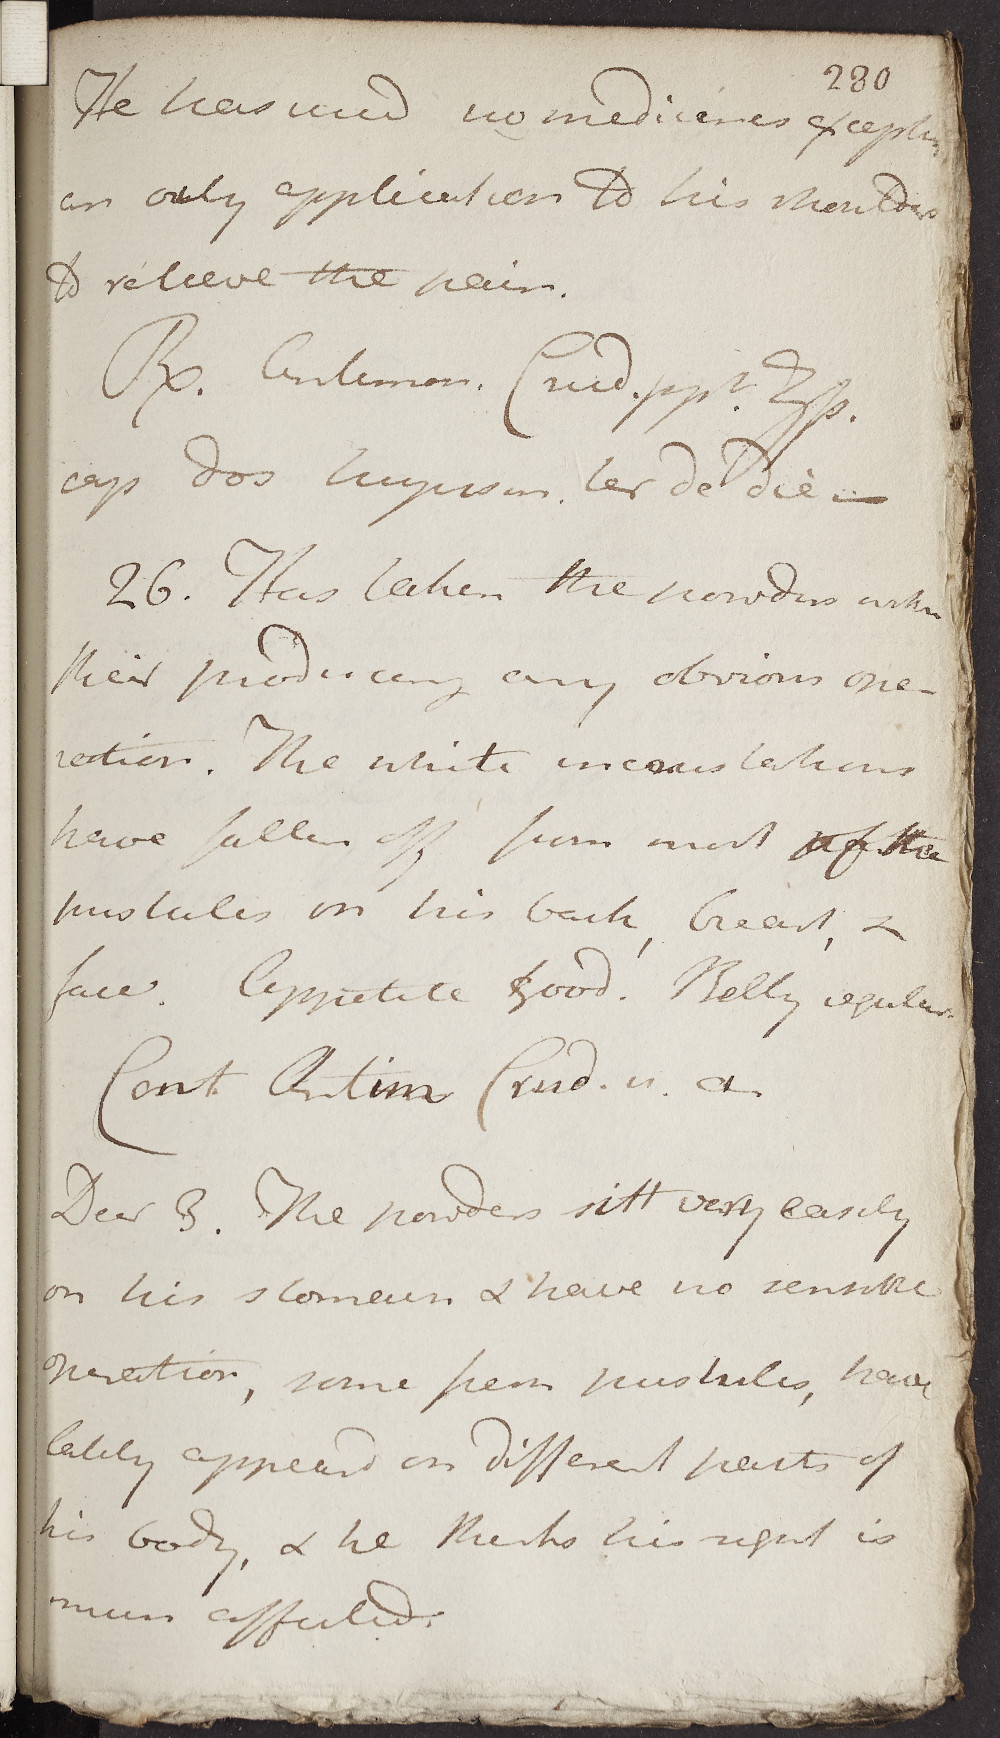 280
He has used no medicines excepting
an oily application to his shoulders
to relieve the pain.
Rx. Antimon. Crud. ppt. ℥ſs.
cap dos hujusm. ter de die
26. Has taken the powders without
their producing any obvious ope-
ration. The white incrustations
have fallen off from most of the
pustules on his back, breast, &
face. Appetite good. Belly regular.
Cont Antim Crud. u. a.
Decr 3. The powders sitt very easily
on his stomach & have no sensible
operation, some fern pustules, have
lately appeard on different parts of
his body, & he thinks his sight is
much affected.